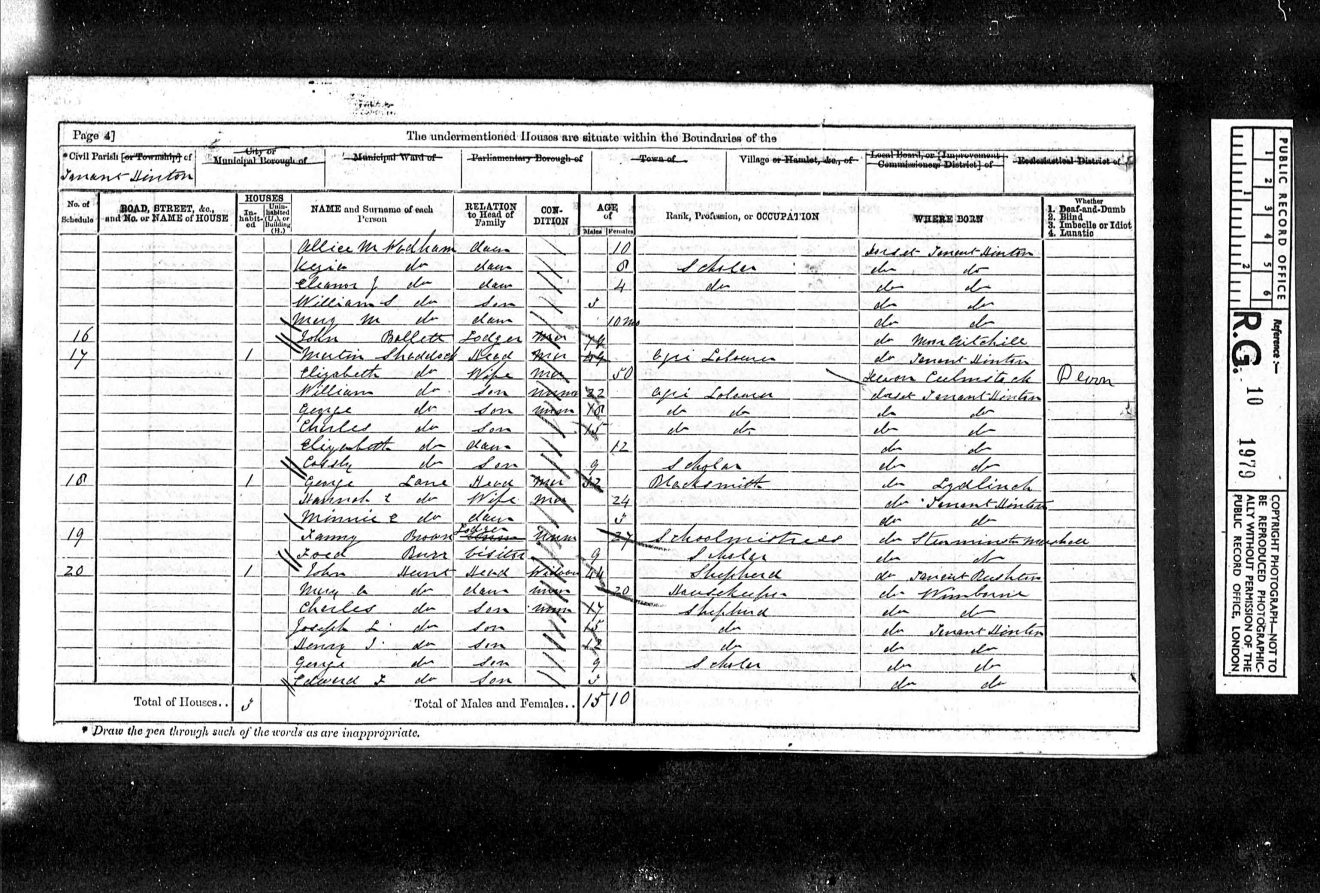 Page 4]
The undermentioned Houses are situate within the Boundaries of the
* Civil Parish [or Township] of
City or Municipal Borough of
Municipal Ward of
Parliamentary Borough of
Town of
Village or Hamlet, &c., of
Local Board, or [Improvement Commissioners District] of
Ecclesiastical District of
Tarrant Hinton
No. of Schedule
ROAD, STREET, &c., and No. or NAME of HOUSE
HOUSES
Inhabited
Uninhabited (U.), or Building (B.)
NAME and Surname of each Person
RELATION to Head of Family
CONDITION
AGE of
Males
Females
Rank, Profession, or OCCUPATION
WHERE BORN
Whether
1. Deaf-and-Dumb
2. Blind
3. Imbecile or Idiot
4. Lunatic
Allice M Wadham daur 10 Dorset Tarrant Hinton
Kezia do daur 8 Scholar do do
Eleanor J do daur 4 do do do
William S do son 3 do do
Mary M do daur 10 mo do do
16 John Lodger Mar 74 do
17 1 Martin Shaddock Head Mar 49 Agri Labourer do Tarrant Hinton
Elizabeth do Wife Mar 50 Devon Culmstock Devon
William do son unm 22 Agri Labourer Dorset Tarrant Hinton
George do son unm 18 do do do do
Charles do son 15 do do do do
Elizabeth do daur 12 do do
do Son 9 Scholar do do
18 1 George Lane Head Mar 32 Blacksmith do Lydlinch
Hannah E do Wife Mar 24 do Tarrant Hinton
Minnie E do daur 3 do do
19 Fanny Brown Lodger Unm 27 Schoolmistress do Sturminster Marshall
Burr Visitor 9 Scholar do do
20 1 John Hunt Head Widower 44 Shepherd do Tarrant Rushton
Mary A do daur unm 20 Housekeeper do Wimborne
Charles do son unm 17 Shepherd do do
Joseph L do son 15 do do Tarrant Hinton
Henry J do son 12 do do do
George do son 9 Scholar do do
Edward F do Son 3 do do
Total of Houses.. 3 Total of Males and Females.. 15 10
* Draw the pen through such of the words as are inappropriate.
PUBLIC RECORD OFFICE
1 2 3 4 5 6
1 2
Reference:-
R.G. 10 1979
COPYRIGHT PHOTOGRAPH—NOT TO BE REPRODUCED PHOTOGRAPHICALLY WITHOUT PERMISSION OF THE PUBLIC RECORD OFFICE, LONDON